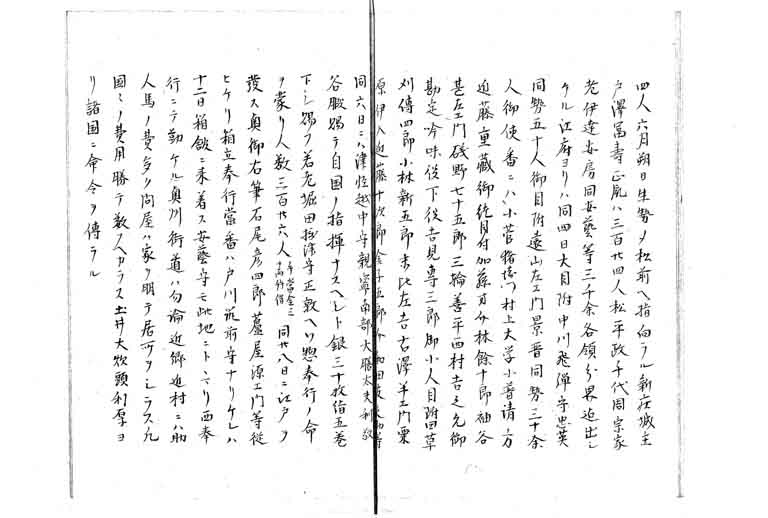 四人六月朔日生勢ヲ松前ヘ指向ラル新庄城主
戸澤冨壽正胤ハ三百廿四人松平政千代周宗家
老伊達安房同安藝等三千余各領分界迫出シ
ケル江府ヨリハ同四日大目附中川飛彈守忠英
同勢五十人御目附遠山左エ門景晋同勢三十余
人御使番ニハ小菅猪右衛門村上大学小普請方
近藤重藏御徒目付加藤百介林餘十郎袖谷
甚左エ門磯野七十五郎三輪善平西村吉之允御
勘定吟味役下役吉見専三郎御小人目附田草
刈傳四郎小林新五郎末比左吉古澤半エ門粟
原伊八近藤十次郎金子五郎介和田
同六日ニハ津軽越中守親寧南部大膳太夫利敬
谷服賜テ自国ノ指揮ナスヘシト銀三十枚借五巻
下シ賜フ若老堀田摂津守正敦ヘハ惣奉行ノ命
ヲ蒙リ人数三百廿六人同廿八日ニ江戸ヲ
發ス奥御右筆石尾彦四郎蘆屋源エ門等從
ヒケリ箱立奉行當番ハ戸川筑前守ナリケレハ
十二日箱館ニ来着ス安藝守モ此地ニトヽマリ両奉
行ニテ勤ケル奥川街道ハ勿論近郷近村ニハ助
人馬ノ費多ク問屋ハ家ヲ明テ居所ヲシラス凡
國ミノ費用勝テ数フヘカラス土井大炊頭利厚ヨ
リ諸国ニ命令ヲ傳ラル